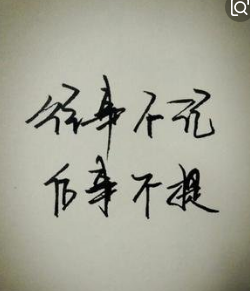 往事不记
后事不提